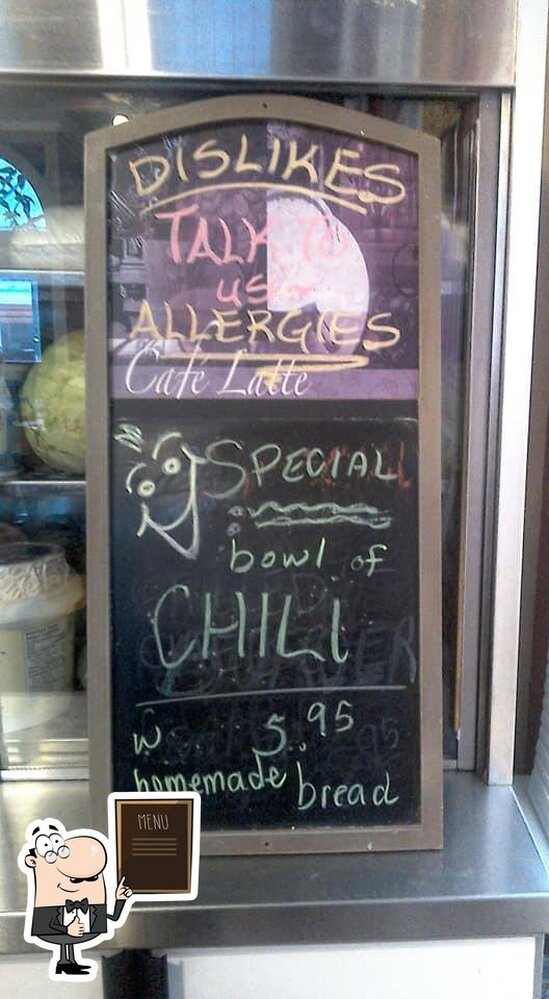 DISLIKES
TALK TO
US
ALLERGIES
Café Latte
SPECIAL
bowl of
CHILI
W 5.95
homemade bread
MENU